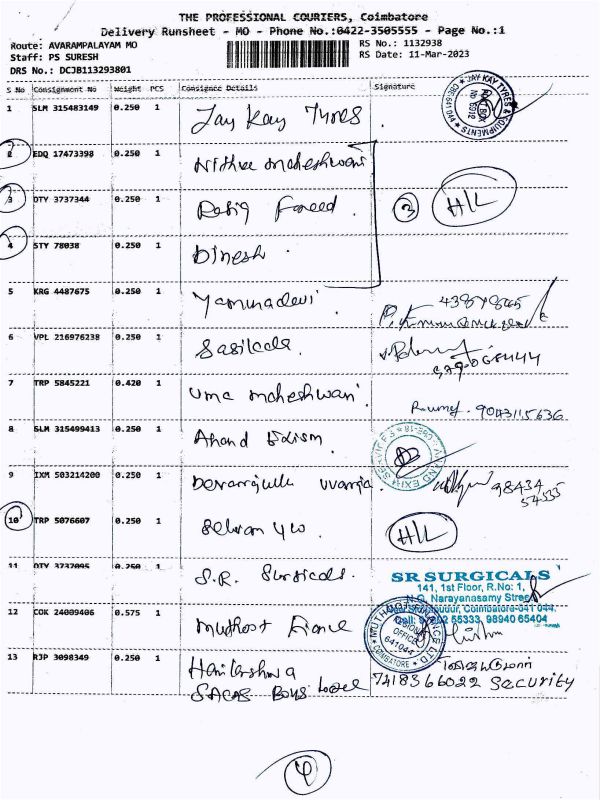 THE PROFESSIONAL COURIERS, Coimbatore
Delivery Runsheet - MO - Phone No.:0422-3505555 - Page No.:1
Route: AVARAMPALAYAM MO
RS No.: 1132938
Staff: PS SURESH
RS Date: 11-Mar-2023
DRS No.: DCJB113293801
S No Consignment No Weight PCS Consignee Details Signature
1 SLM 315483149 0.250 1 Jay Kay Tyres JAY KAY TYRES & EQUIPMENTS
2 EDQ 17473398 0.250 1 Nithya maheshwari
3 DTY 3737344 0.250 1 Rafiq Fareed 3 H/L
4 STY 78038 0.250 1 Dinesh
5 KRG 4487675 0.250 1 Yamunadevi
6 VPL 216976238 0.250 1 Sasikala
7 TRP 5845221 0.420 1 Uma maheshwari 9043115636
8 SLM 315499413 0.250 1 Anand
9 IXM 503214200 0.250 1 98434
54535
10 TRP 5076607 0.250 1 Selvan H/L
11 DTY 3737095 0.250 1 S.R. Surgicals.
SR SURGICALS
141, 1st Floor, R.No: 1,
N.G. Narayanasamy Street
Coimbatore-641 044.
55333, 98940 65404
12 COK 24009406 0.575 1 Muthoot
641044
COIMBATORE
13 RJP 3098349 0.250 1
Boys
7418366022 security
4